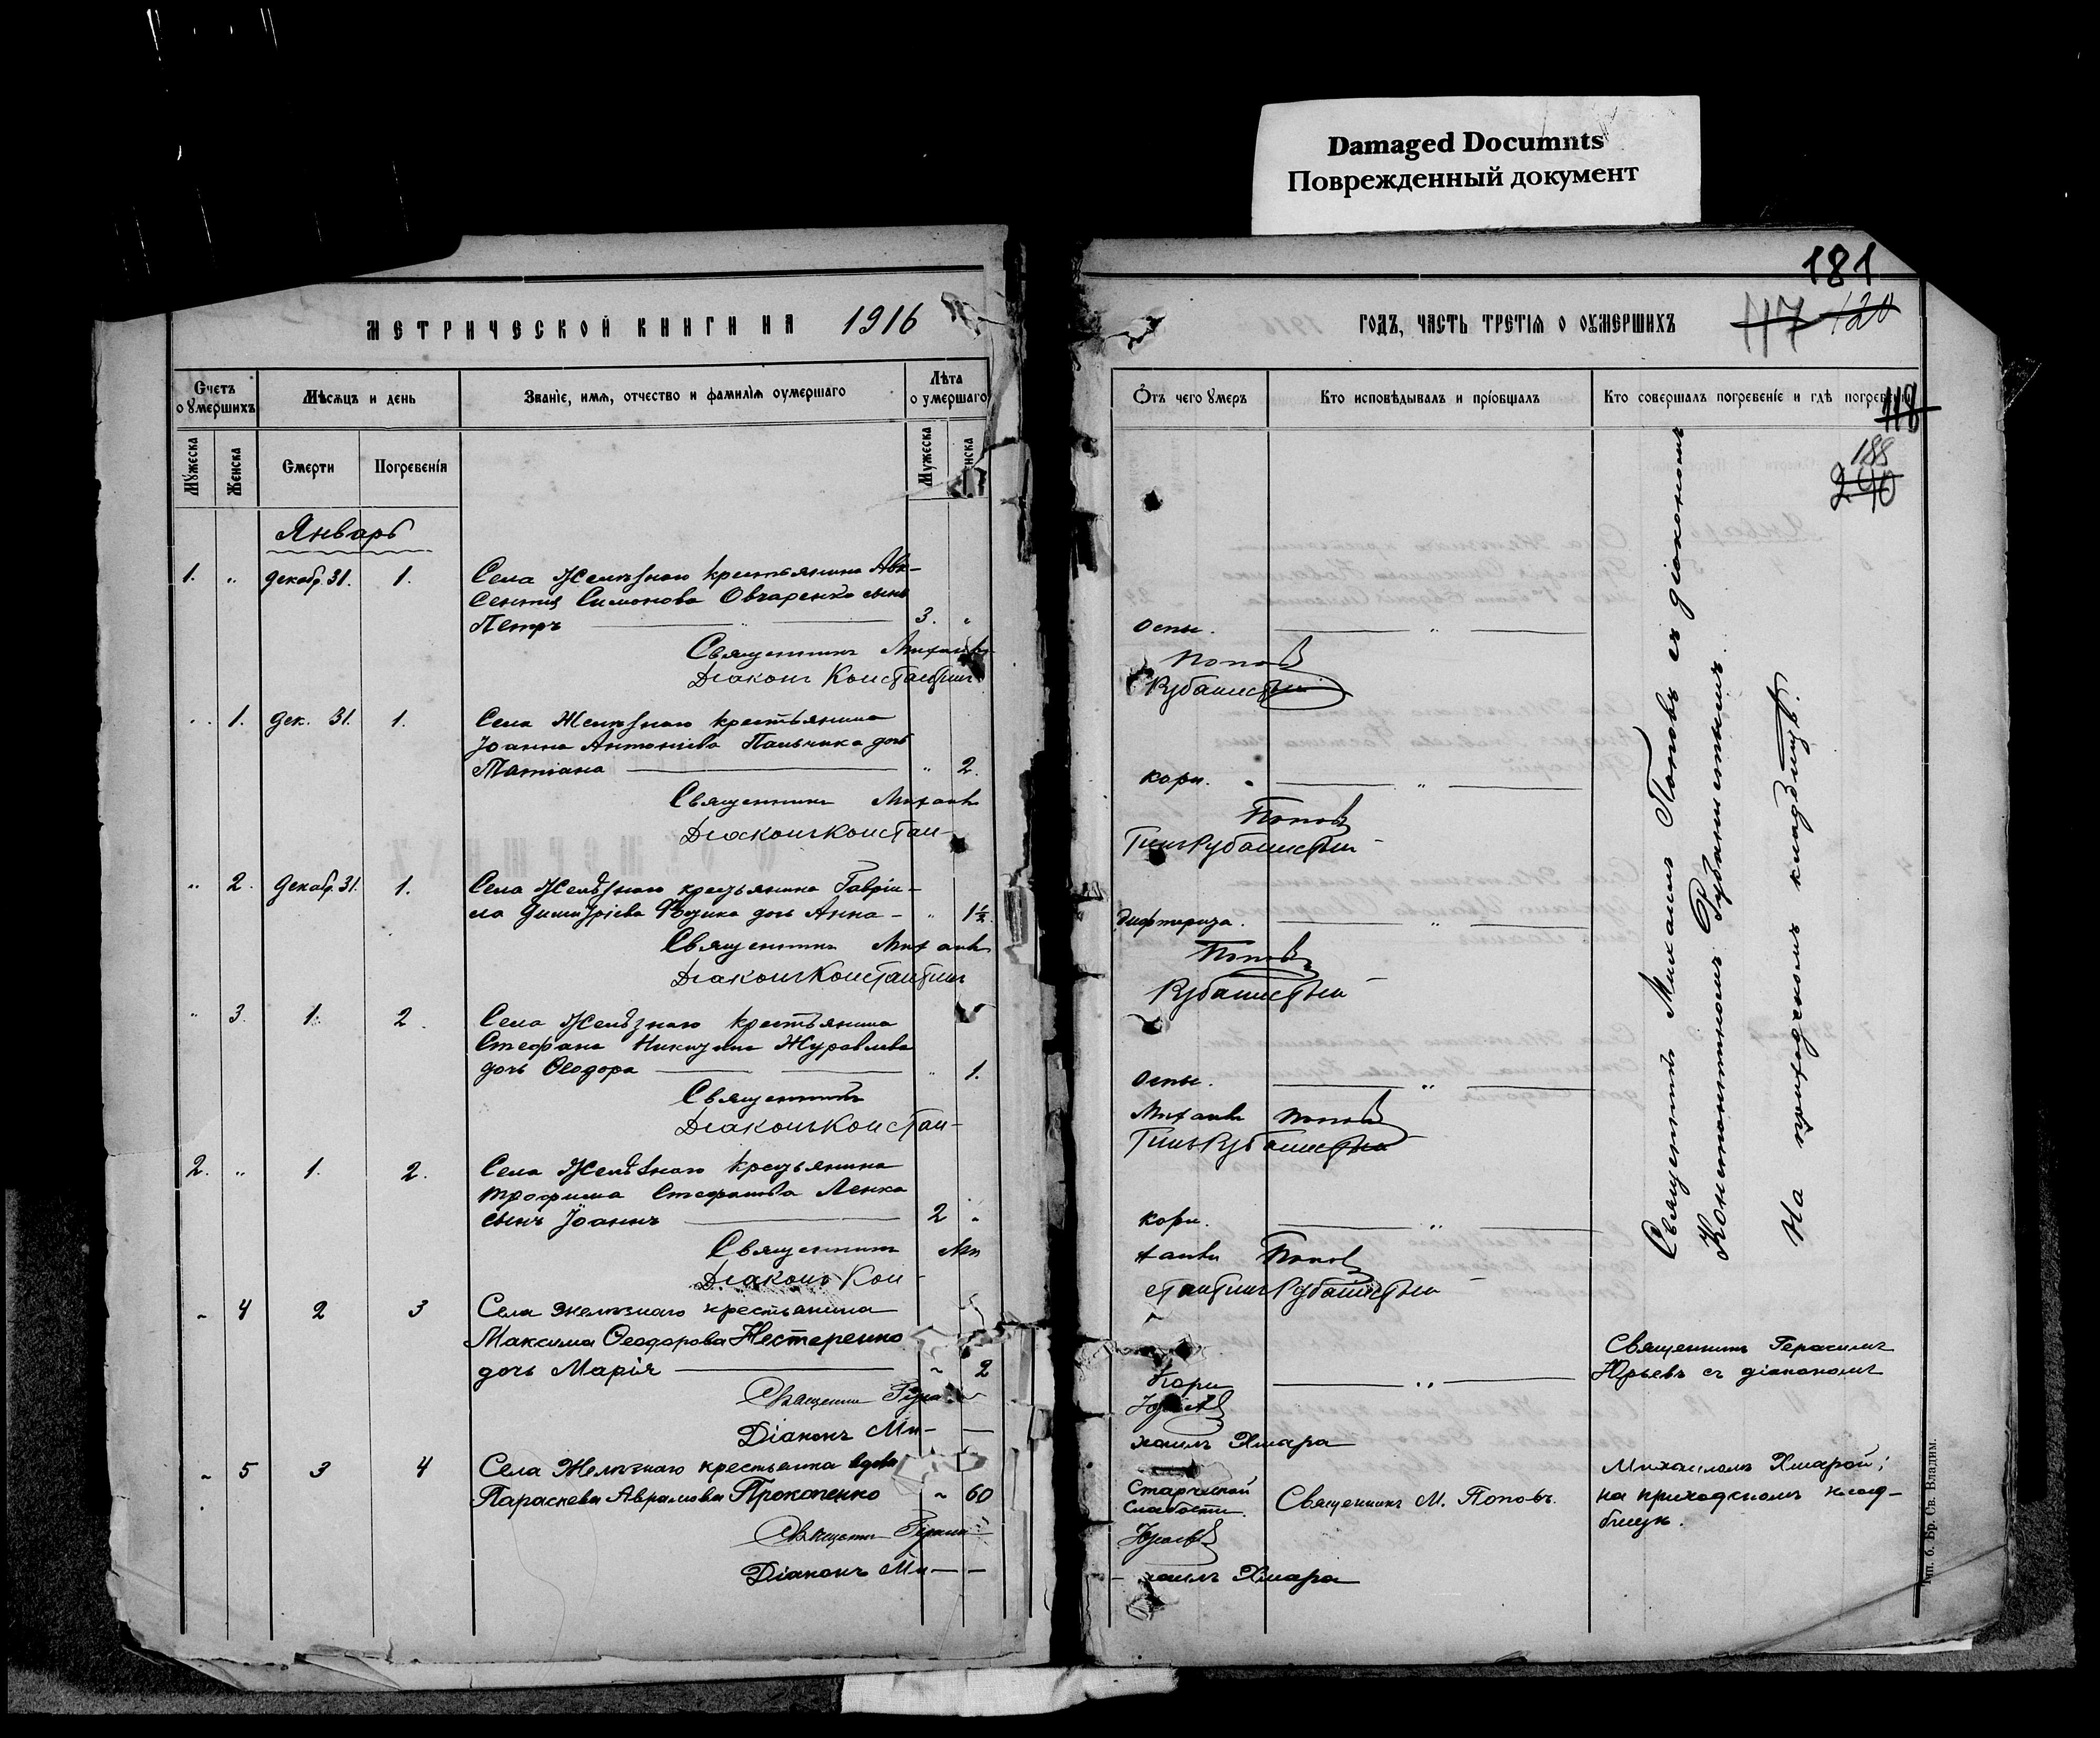 Damaged Documnts
Поврежденный документ
МЕТРИЧЕСКОЙ КНИГИ НА 1916
Счетъ
о умершихъ
Мѣсяцъ и день
Званіе, имя, отчество и фамилія оумершаго
Лѣта
о умершаго
Мужеска
Женска
Смерти
Погребенія
Мужеска
нска
Январь
1. " декабр. 31. 1. Села Желѣзнаго крестьянина Авк-
сентія Симонова Овчаренко сынъ
Петръ 3. "
Священникъ Михаилъ
Діаконъ Константинъ
" 1. дек. 31. 1. Села Желѣзнаго крестьянина
Іоанна Антоніева Пальчика дочь
Татіана " 2.
Священникъ Михаилъ
Діаконъ Констан-
" 2. Декабр. 31. 1. Села Желѣзнаго крестьянина Гаврі-
ла Димитріева дочь Анна - " 1½
Священникъ Михаилъ
Діаконъ Константинъ
" 3. 1. 2. Села Желѣзнаго крестьянина
Стефана Никитина Журавлева
дочь Ѳеодора " 1.
Священникъ
Діаконъ Констан-
2. " 1. 2. Села Желѣзнаго крестьянина
Трофима Стефанова Ленка
сынъ Іоаннъ 2 "
Священникъ Ми
Діаконъ Кон-
" 4 2 3 Села Желѣзнаго крестьянина
Максима Ѳеодорова Нестеренко
дочь Марія " 2
Священникъ Гера
Діаконъ Ми-
" 5 3 4 Села Желѣзнаго крестьянка вдова
Параскева Аврамова Прокопенко " 60
Священникъ Гераси
Діаконъ Ми-
181
ГОДЪ, ЧАСТЬ ТРЕТІЯ О ОУМЕРШИХЪ
117 120
Отъ чего умеръ
Кто исповѣдывалъ и пріобщалъ
Кто совершалъ погребеніе и гдѣ погребены
118
188
290
Оспы. "
Поповъ
Рубанистый
Кори. "
Поповъ
тинъ Рубанистый
дифтерита. "
Поповъ
Рубанистый
Оспы. "
Михаилъ Поповъ
тинъ Рубанистый
Кори. "
хаилъ Поповъ
стантинъ Рубанистый
Кори "
Юрьевъ
хаилъ Хмара
Старческой
слабости. Священникъ М. Поповъ.
Юрьевъ
хаилъ Хмара
Священникъ Михаилъ Поповъ съ діакономъ
Константиномъ Рубанистымъ.
На приходскомъ кладбищѣ.
Священникъ Герасимъ
Юрьевъ съ діакономъ
Михаиломъ Хмарой;
на приходскомъ клад-
бищѣ.
Тип. б. Бр. Св. Владим.